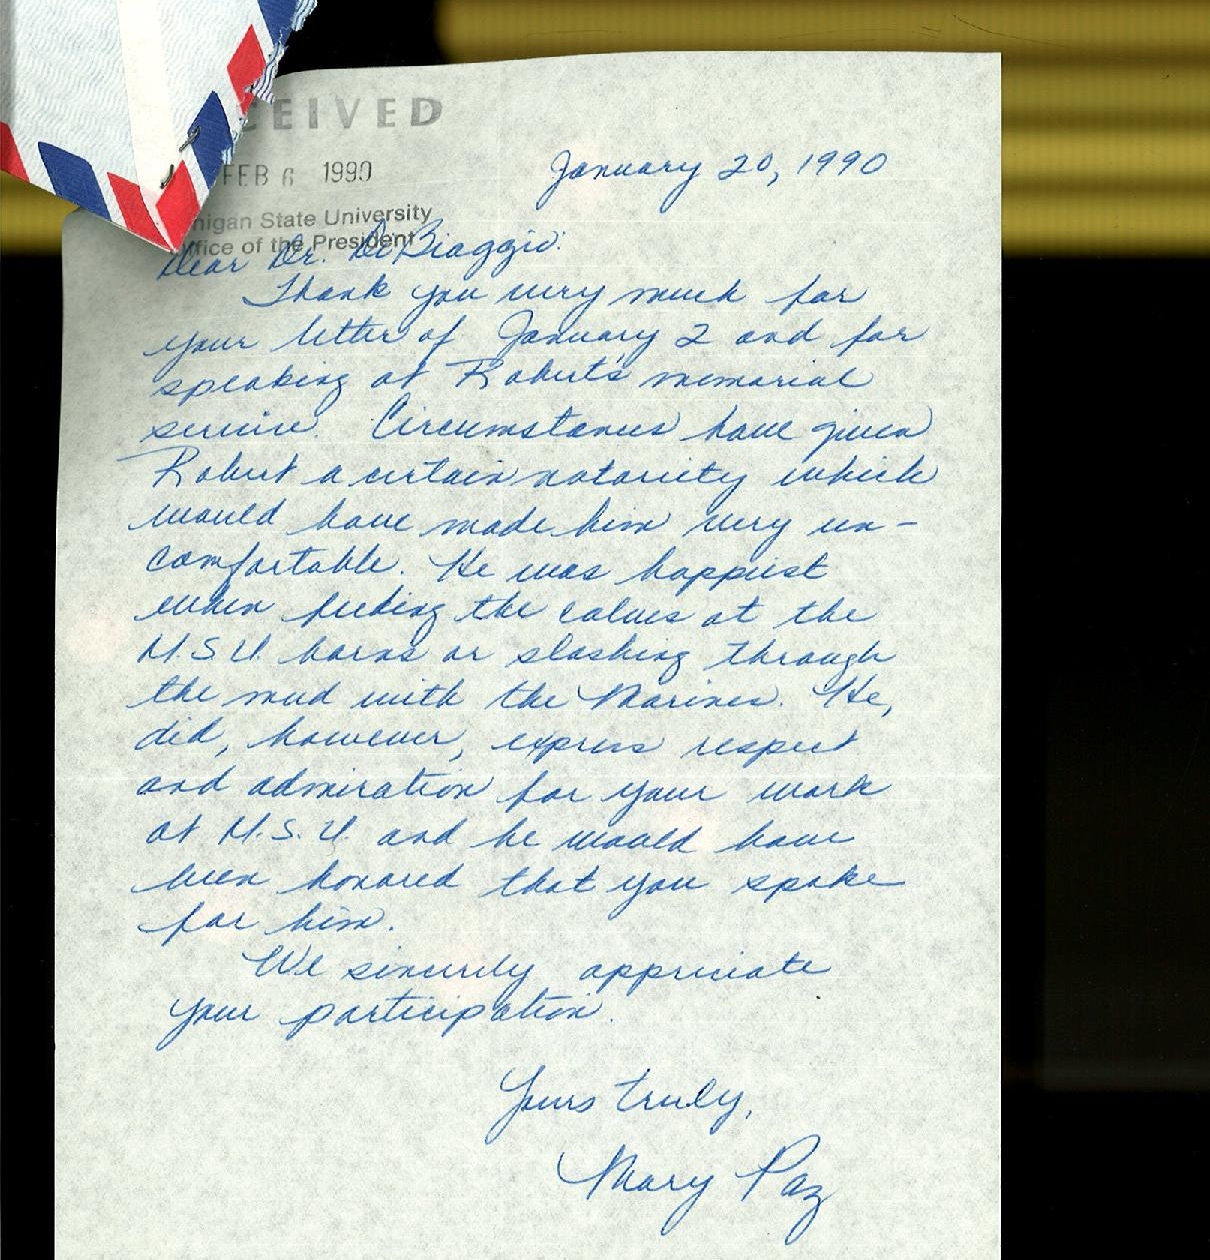 CEIVED
FEB 6 1990
higan State University
ffice of the President
January 20, 1990
Dear Dr. DiBiaggio:
Thank you very much for
your letter of January 2 and for
speaking at Robert's memorial
service. Circumstances have given
Robert a certain notoriety which
would have made him very un-
comfortable. He was happiest
when feeding the calves at the
M.S.U. barns or sloshing through
the mud with the Marines. He,
did, however, express respect
and admiration for your work
at M.S.U. and he would have
been honored that you spoke
for him.
We sincerely appreciate
your participation.
Yours truly,
Mary Paz